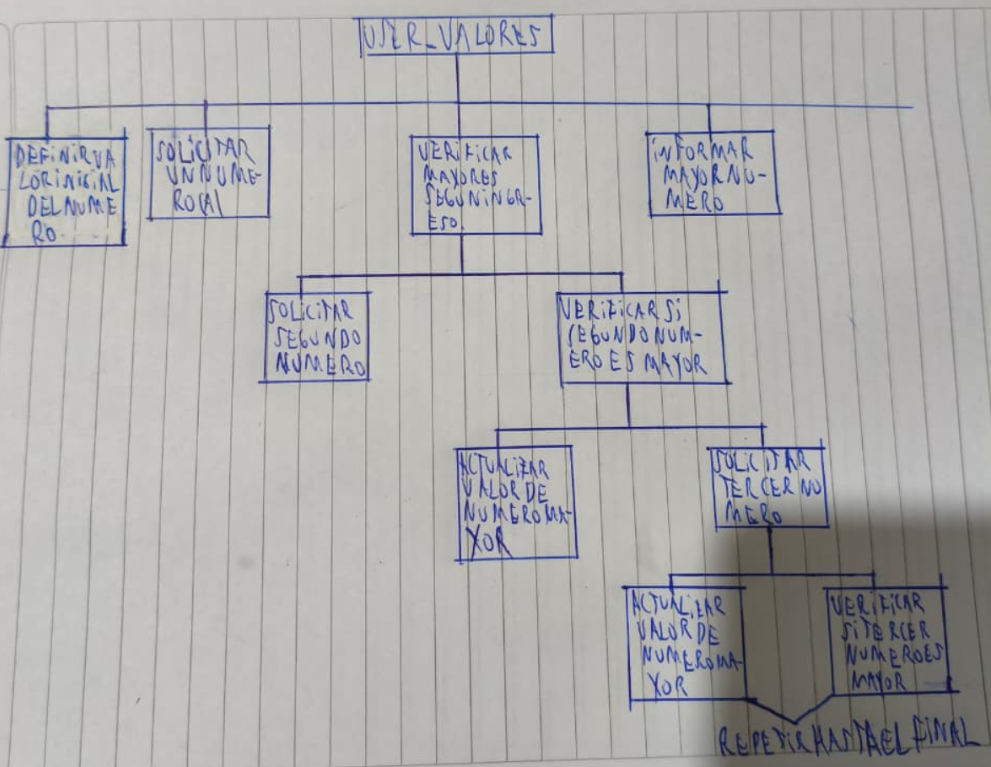 USER_VALORES
DEFINIR VA
LOR INICIAL
DEL NUME
RO
SOLICITAR
UN NUME-
RO(A)
VERIFICAR
MAYORES
SEGUN INGR-
ESO
INFORMAR
MAYOR NU-
MERO
SOLICITAR
SEGUNDO
NUMERO
VERIFICAR SI
SEGUNDO NUM-
ERO ES MAYOR
ACTUALIZAR
VALOR DE
NUMERO MA-
YOR
SOLICITAR
TERCER NU
MERO
ACTUALIZAR
VALOR DE
NUMERO MA-
YOR
VERIFICAR
SI TERCER
NUMERO ES
MAYOR
REPETIR HASTA EL FINAL